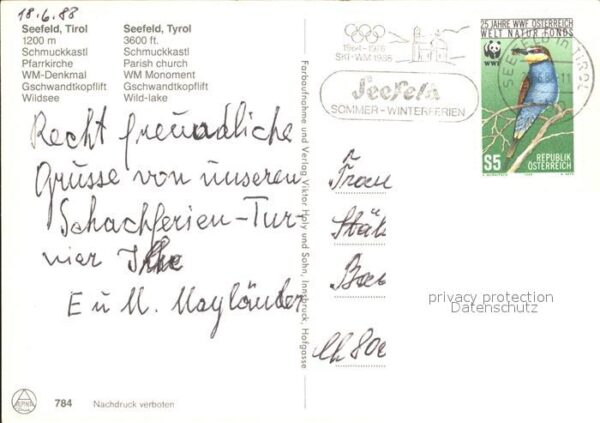 18.6.88
Seefeld, Tirol
1200 m
Schmuckkastl
Pfarrkirche
WM-Denkmal
Gschwandtkopflift
Wildsee
Seefeld, Tyrol
3600 ft.
Schmuckkastl
Parish church
WM Monument
Gschwandtkopflift
Wild-lake
Recht freundliche
Grüsse von unseren
Schachferien-Tur-
nier Ihre
E u M. Mayländer
784 Nachdruck verboten
Farbaufnahme und Verlag Viktor Holy und Sohn, Innsbruck, Hofgasse
1964-1976
SKI-WM 1985
Seefeld
SOMMER-WINTERFERIEN
25 JAHRE WWF ÖSTERREICH
WELT NATUR FONDS
WWF
SEEFELD in TIROL
S5
REPUBLIK
ÖSTERREICH
Frau
Stäh
CH 800
privacy protection
Datenschutz